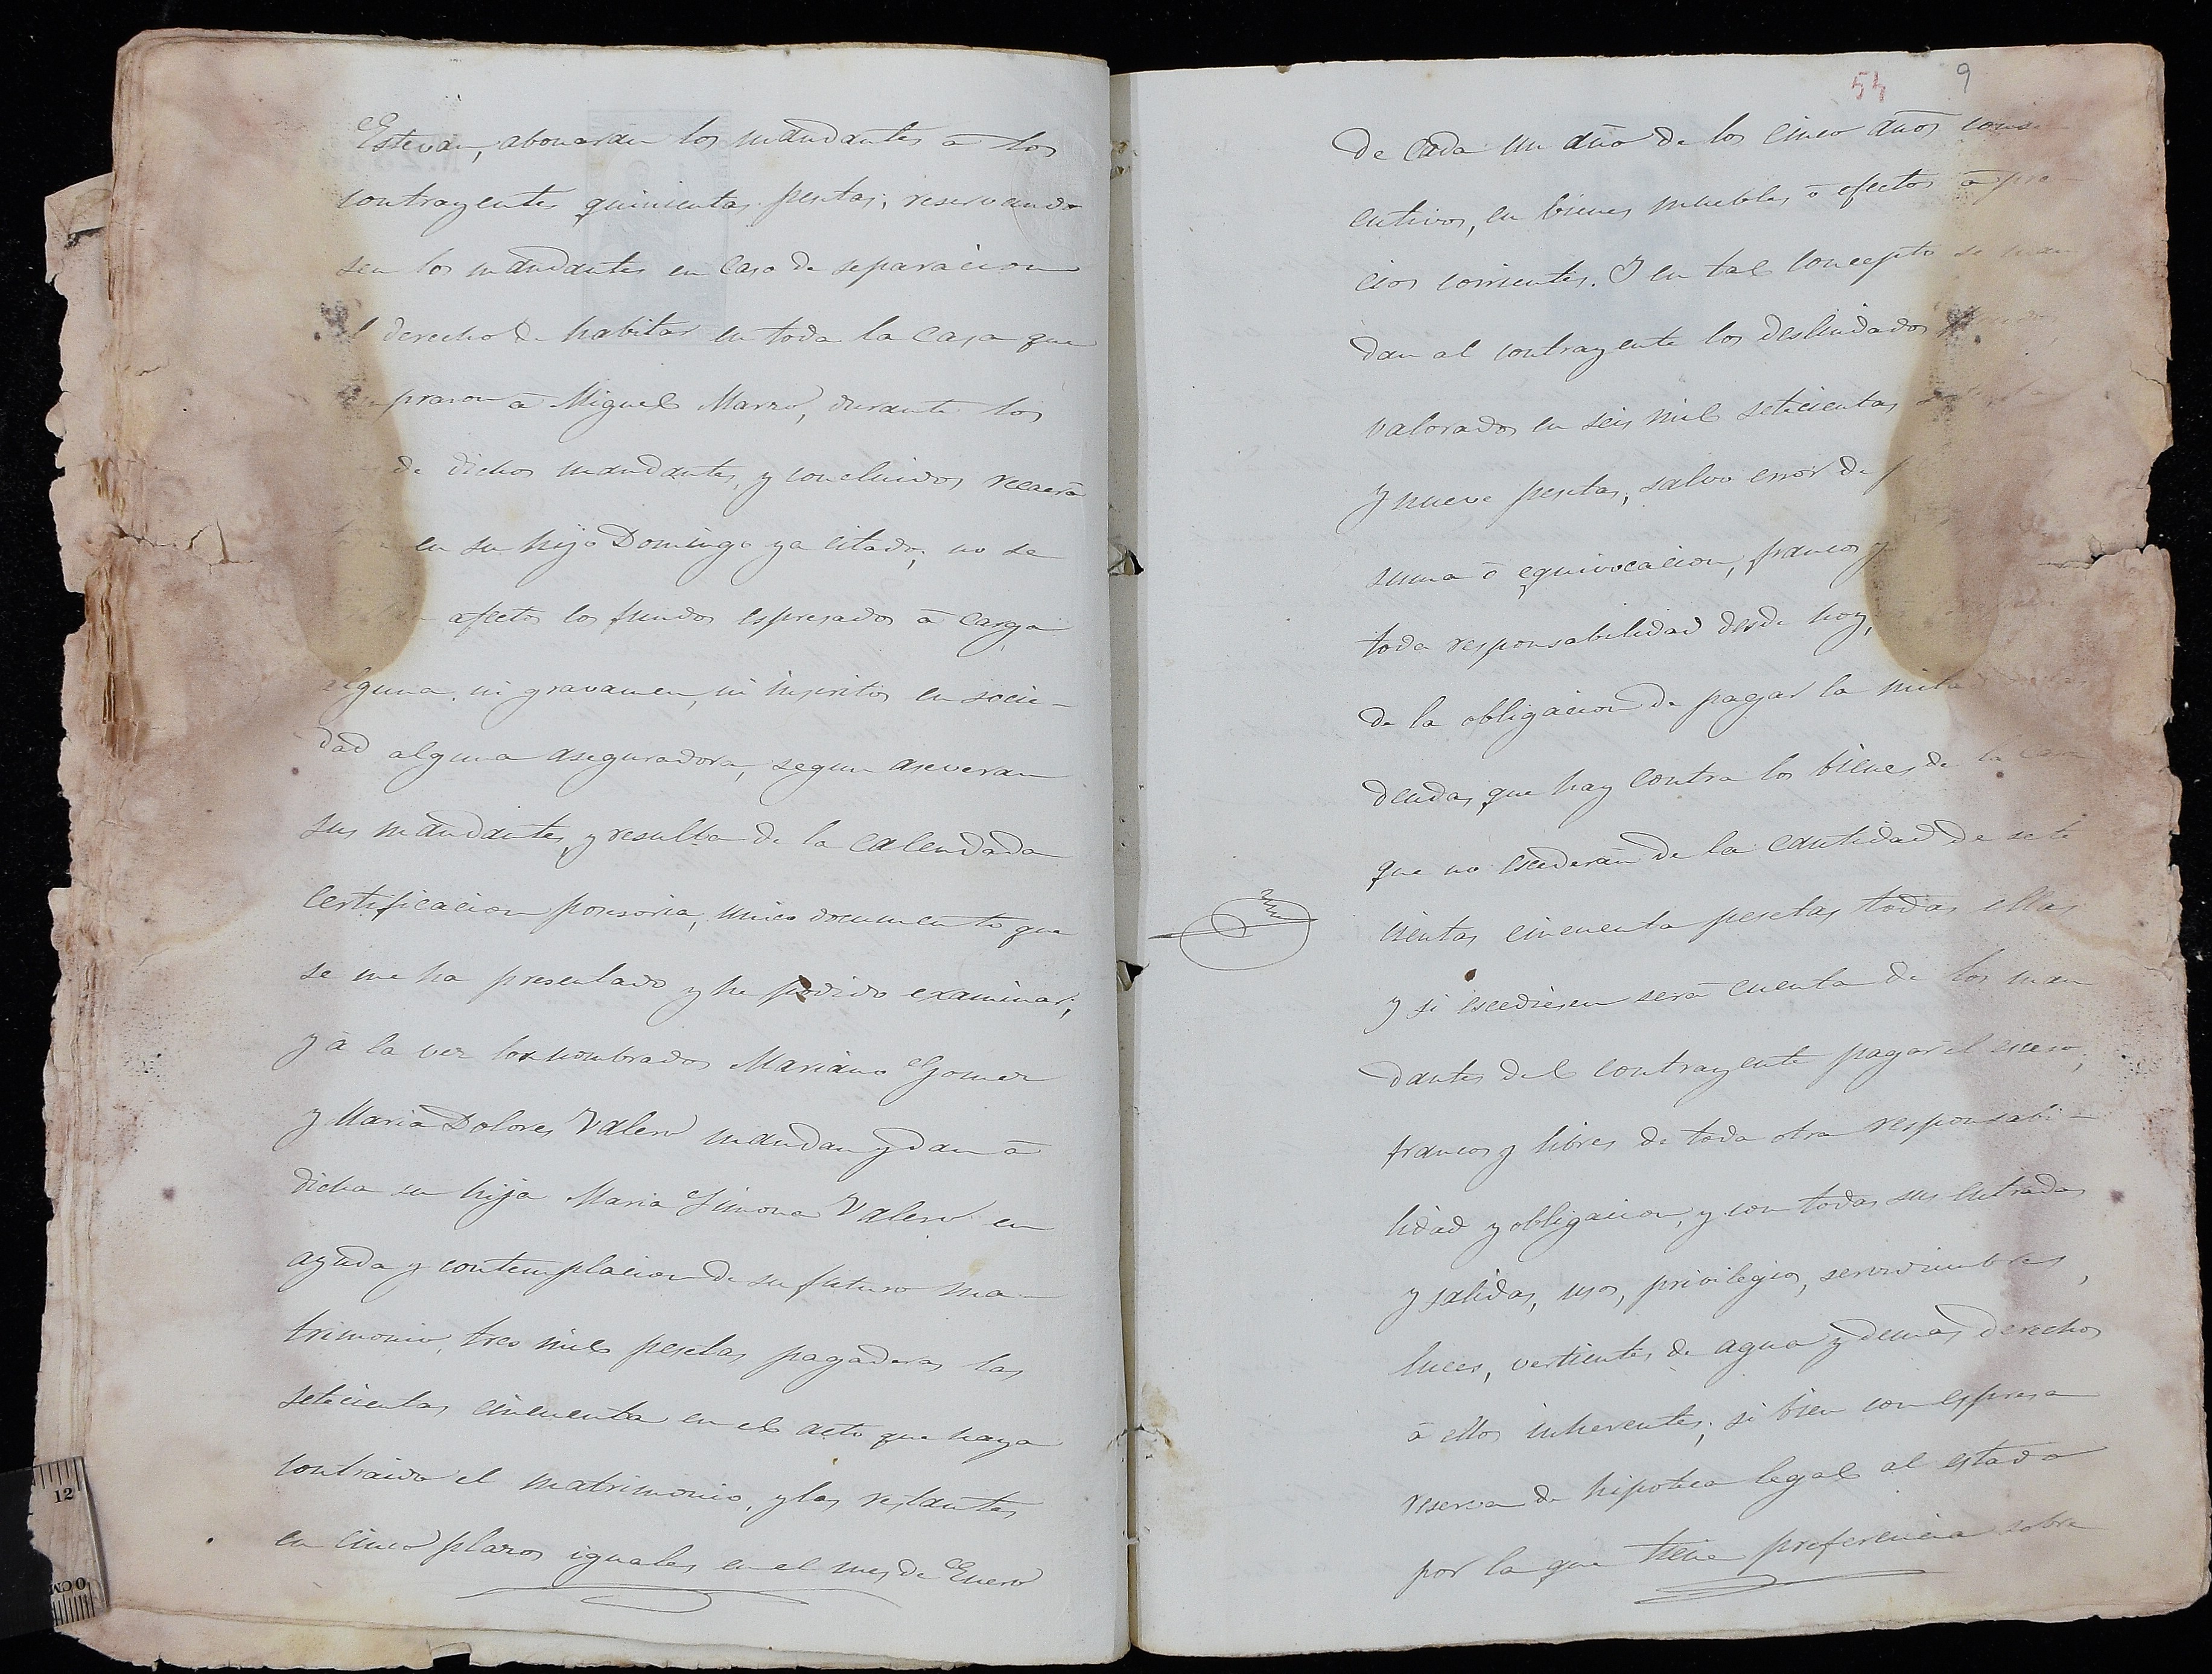 Estevan, abonaran los mandantes á los
contrayentes quinientas pesetas; reservando
sen los mandantes en caso de separacion
derecho de habitar en toda la casa que
praron á Miguel Marzo, durante los
de dichos mandantes, y concluidos recaerá
en su hijo Domingo ya citado; no se
afectos los fundos espresados á carga
alguna, ni gravamen, ni inscritos en socie-
dad alguna aseguradora, segun aseveran
sus mandantes, y resulta de la calendada
certificacion posesoria, unico documento que
se me ha presentado y he podido examinar;
y á la vez los nombrados Mariano Gomez
y Maria Dolores Valero mandan y dan á
dicha su hija Maria Simona Valero en
ayuda y contemplacion de su futuro ma-
trimonio, tres mil pesetas pagaderas las
setecientas cincuenta en el acto que haya
contraido el matrimonio, y las restantes
en cinco plazos iguales en el mes de Enero
54 9
de cada un año de los cinco años conse-
cutivos, en bienes muebles ó efectos á pre-
cios corrientes. Y en tal concepto se man
dan al contrayente los deslindados
valorados en seis mil setecientas
y nueve pesetas, salvo error de
suma ó equivocacion, francos y
toda responsabilidad desde hoy,
de la obligacion de pagar la mitad
deudas que hay contra los bienes de la casa
que no escederán de la cantidad de sete
cientas cincuenta pesetas todas ellas
y si escediesen será cuenta de los man
dantes del contrayente pagar el esceso;
francos y libres de toda otra responsabi-
lidad y obligacion, y con todas sus entradas
y salidas, usos, privilegios, servidumbres,
luces, vertientes de agua y demas derechos
á ellos inherentes; si bien con espresa
reserva de hipoteca legal al estado
por la que tiene preferencia sobre